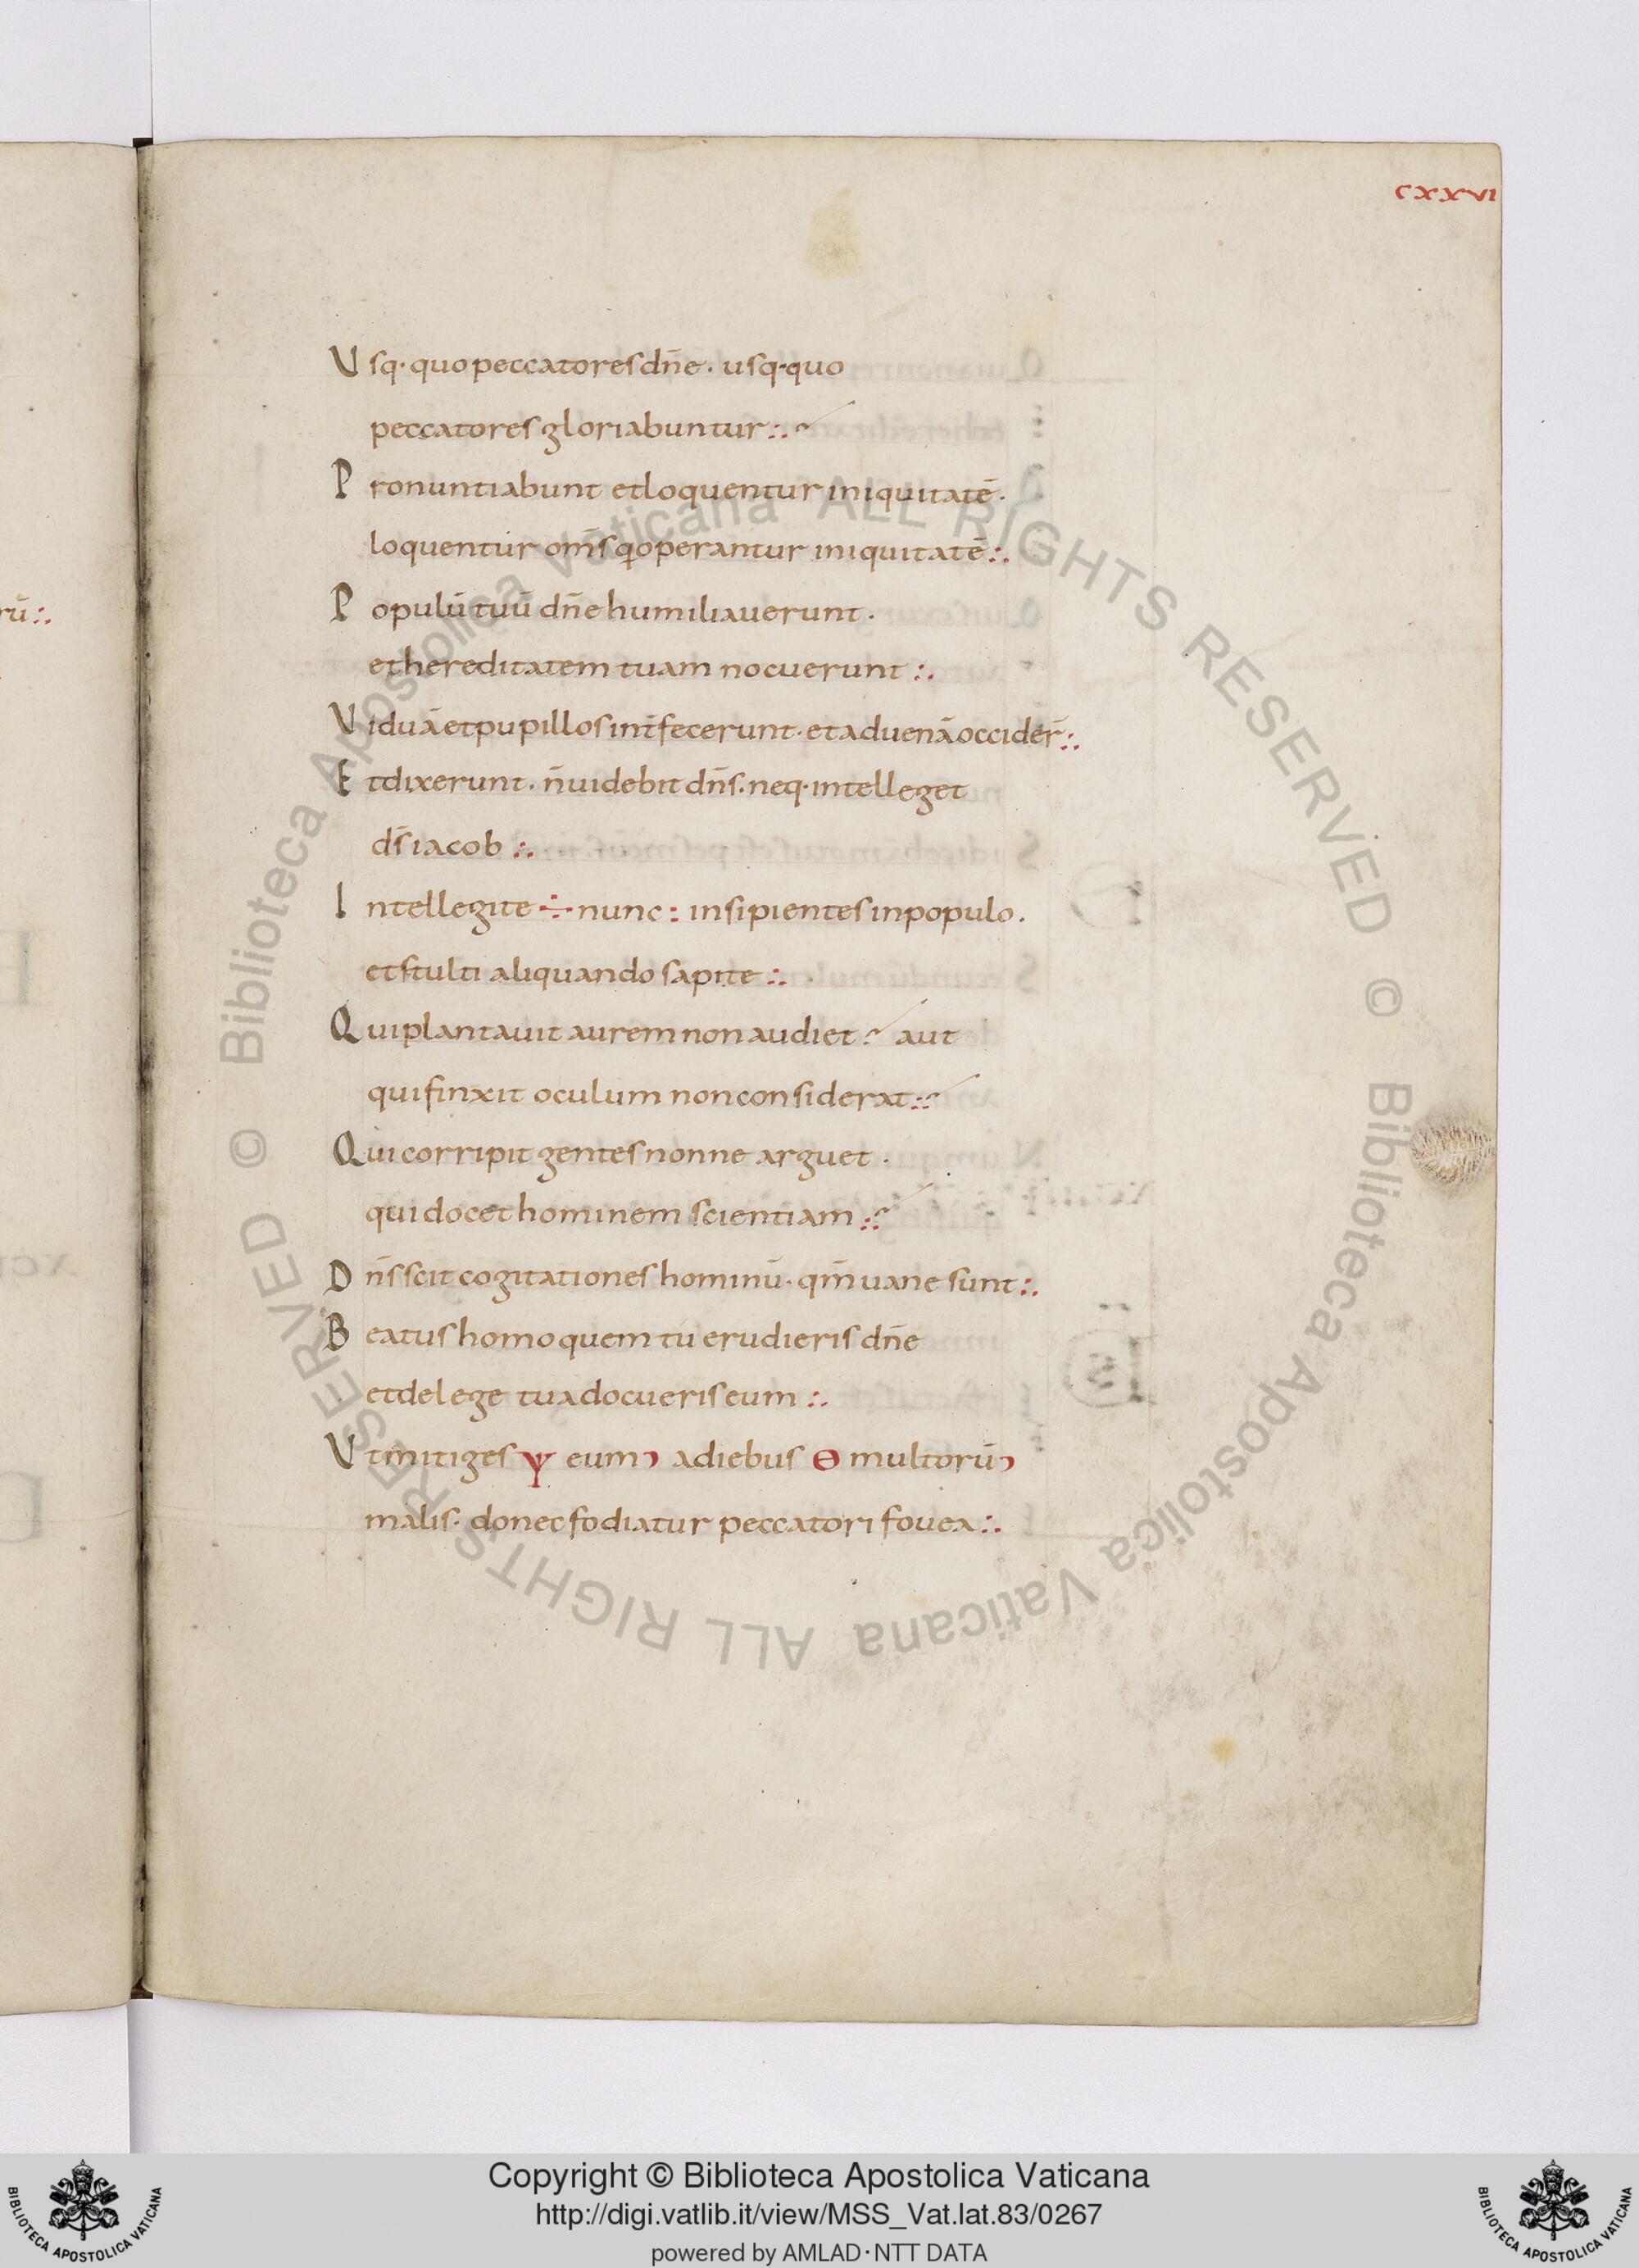 CXXVI
rū:.
Usq· quo peccatores dn̄e· usq·quo
peccatores gloriabuntur:.
Pronuntiabunt et loquentur iniquitatē·
loquentur om̄s q operantur iniquitatē:.
Populū tuū dn̄e humiliauerunt·
et hereditatem tuam nocuerunt:.
Viduā et pupillos int̄fecerunt· et aduenā occider̄:.
Et dixerunt· n̄ uidebit dn̄s· neq· intelleget
ds̄ iacob:.
Intellegite ÷ nunc: insipientes in populo·
et stulti aliquando sapite:.
Qui plantauit aurem non audiet? aut
qui finxit oculum non considerat:?
Qui corripit gentes nonne arguet·
qui docet hominem scientiam:?
Dn̄s scit cogitationes hominū· qm̄ uane sunt:.
Beatus homo quem tu erudieris dn̄e
et de lege tua docueris eum:.
Ut mitiges Ψ eum› a diebus Θ multorū›
malis· donec fodiatur peccatori fouea:.
© Biblioteca Apostolica Vaticana ALL RIGHTS RESERVED © Biblioteca Apostolica Vaticana ALL RIGHTS RESERVED
Copyright © Biblioteca Apostolica Vaticana
http://digi.vatlib.it/view/MSS_Vat.lat.83/0267
powered by AMLAD·NTT DATA
BIBLIOTECA APOSTOLICA VATICANA
BIBLIOTECA APOSTOLICA VATICANA